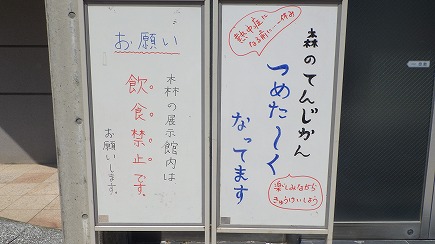 お願い
森の展示館内は
飲。食。禁。止。です。
お願いします。
熱中症に
なる前に…一休み
森のてんじかん
つめた〜く
なってます
楽しみながら
きゅうけいしよう